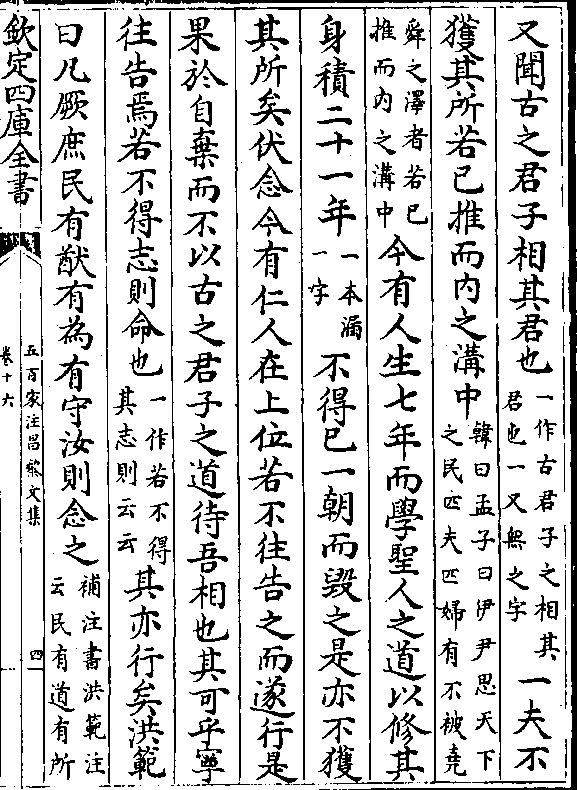 又聞古之君子相其君也一作古君子之相其君也一又無之字一夫不
獲其所若已推而内之溝中韓曰孟子曰伊尹思天下之民匹夫匹婦有不被堯
舜之澤者若已推而内之溝中今有人生七年而學聖人之道以修其
身積二十一年一本漏一字不得已一朝而毀之是亦不獲
其所矣伏念今有仁人在上位若不往告之而遂行是
果於自棄而不以古之君子之道待吾相也其可乎寧
往告焉若不得志則命也一作若不得其志則云云其亦行矣洪範
曰凡厥庶民有猷有為有守汝則念之補注書洪範注云民有道有所
欽定四庫全書
五百家注昌黎文集
卷十六
四